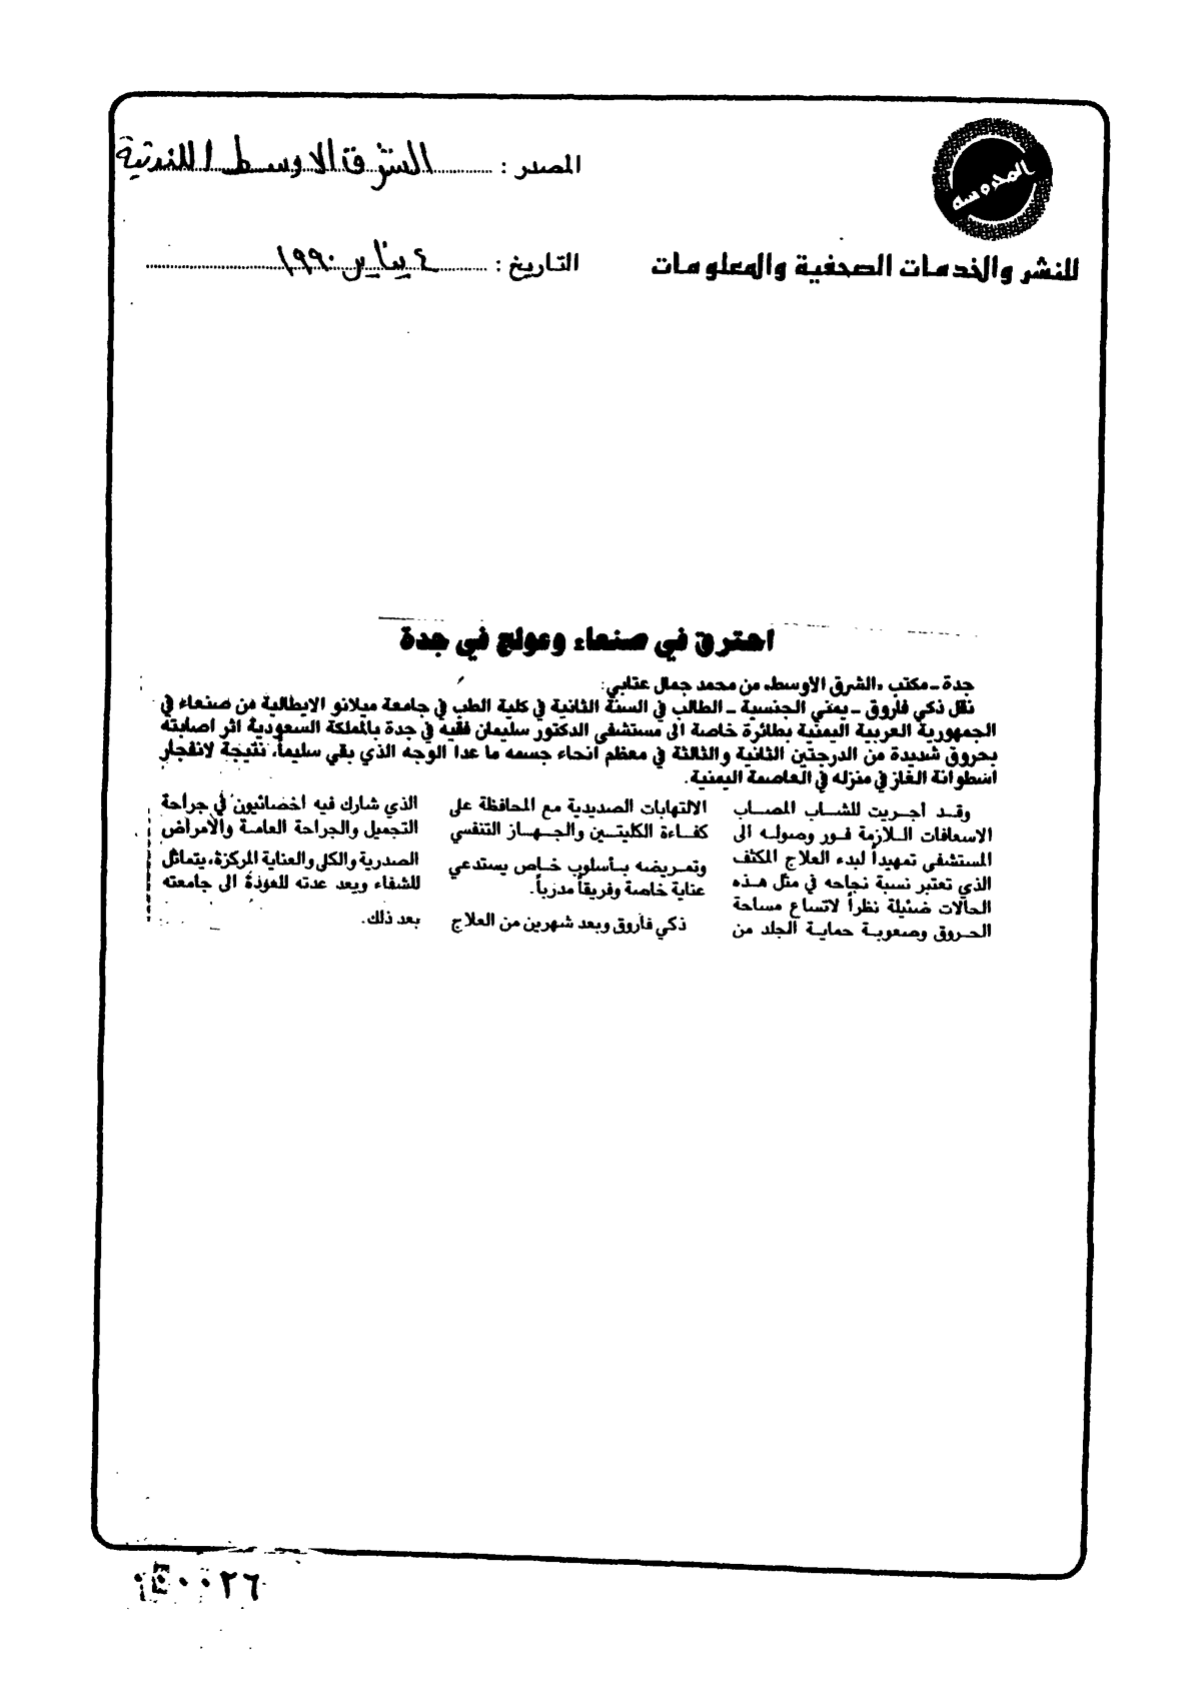 المحروسه
للنشر والخدمات الصحفية والمعلومات
المصدر : الشرق الاوسط اللندنية
التاريخ : ٤ يناير ١٩٩٠
احترق في صنعاء وعولج في جدة
جدة ـ مكتب «الشرق الاوسط» من محمد جمال عتابي:
نقل ذكي فاروق ـ يمني الجنسية ـ الطالب في السنة الثانية في كلية الطب في جامعة ميلانو الايطالية من صنعاء في
الجمهورية العربية اليمنية بطائرة خاصة الى مستشفى الدكتور سليمان فقيه في جدة بالمملكة السعودية اثر اصابته
بحروق شديدة من الدرجتين الثانية والثالثة في معظم انحاء جسمه ما عدا الوجه الذي بقي سليماً، نتيجة لانفجار
اسطوانة الغاز في منزله في العاصمة اليمنية.
وقد أجريت للشاب المصاب
الاسعافات اللازمة فور وصوله الى
المستشفى تمهيداً لبدء العلاج المكثف
الذي تعتبر نسبة نجاحه في مثل هذه
الحالات ضئيلة نظراً لاتساع مساحة
الحروق وصعوبة حماية الجلد من
الالتهابات الصديدية مع المحافظة على
كفاءة الكليتين والجهاز التنفسي
وتمريضه بأسلوب خاص يستدعي
عناية خاصة وفريقاً مدرباً.
ذكي فاروق وبعد شهرين من العلاج
الذي شارك فيه اخصائيون في جراحة
التجميل والجراحة العامة والأمراض
الصدرية والكلى والعناية المركزة، يتماثل
للشفاء ويعد عدته للعودة الى جامعته
بعد ذلك.
٠٠٢٦